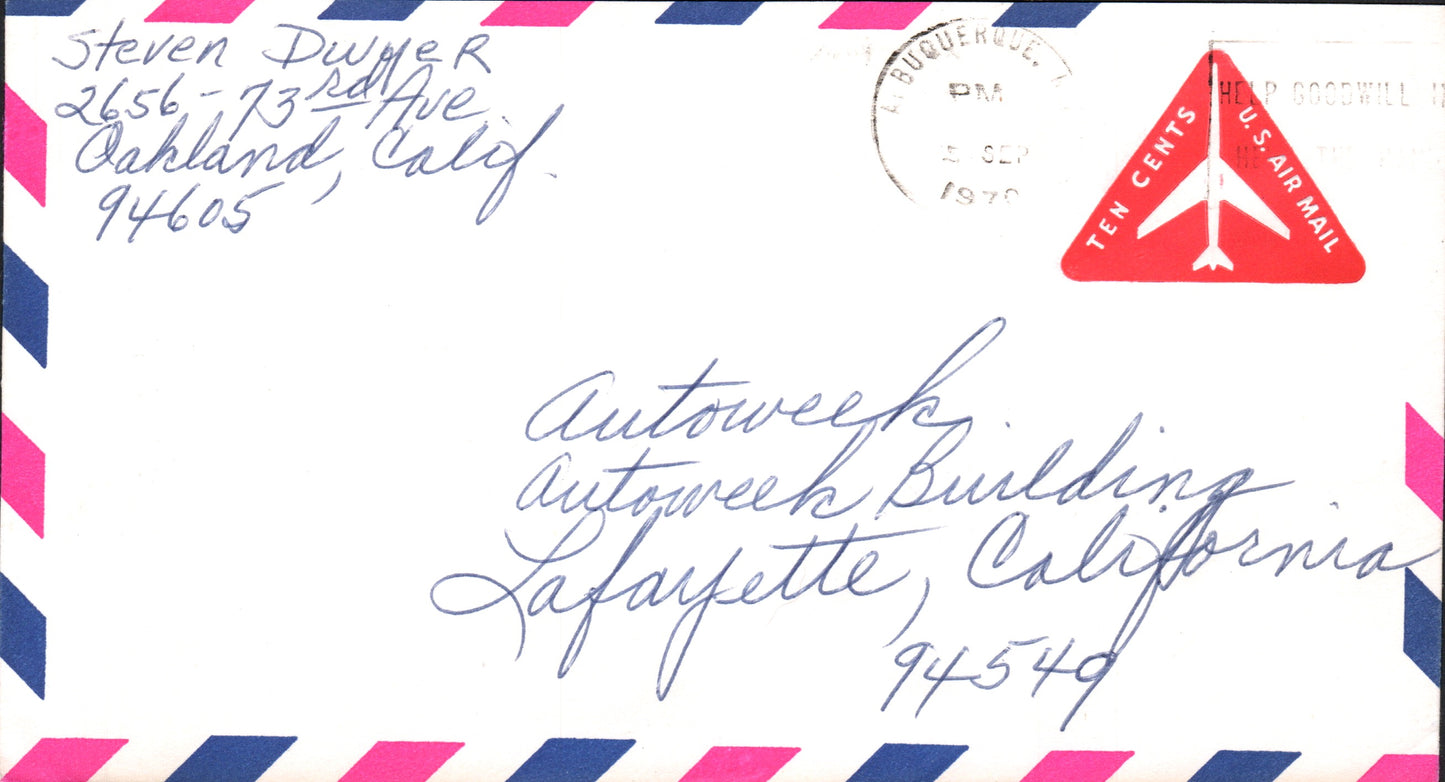 Steven Dwyer
2656-73rd Ave.
Oakland, Calif.
94605
ALBUQUERQUE,
PM
5 SEP
1970
HELP GOODWILL
TEN CENTS
U.S. AIR MAIL
Autoweek
Autoweek Building
Lafayette, California
94549